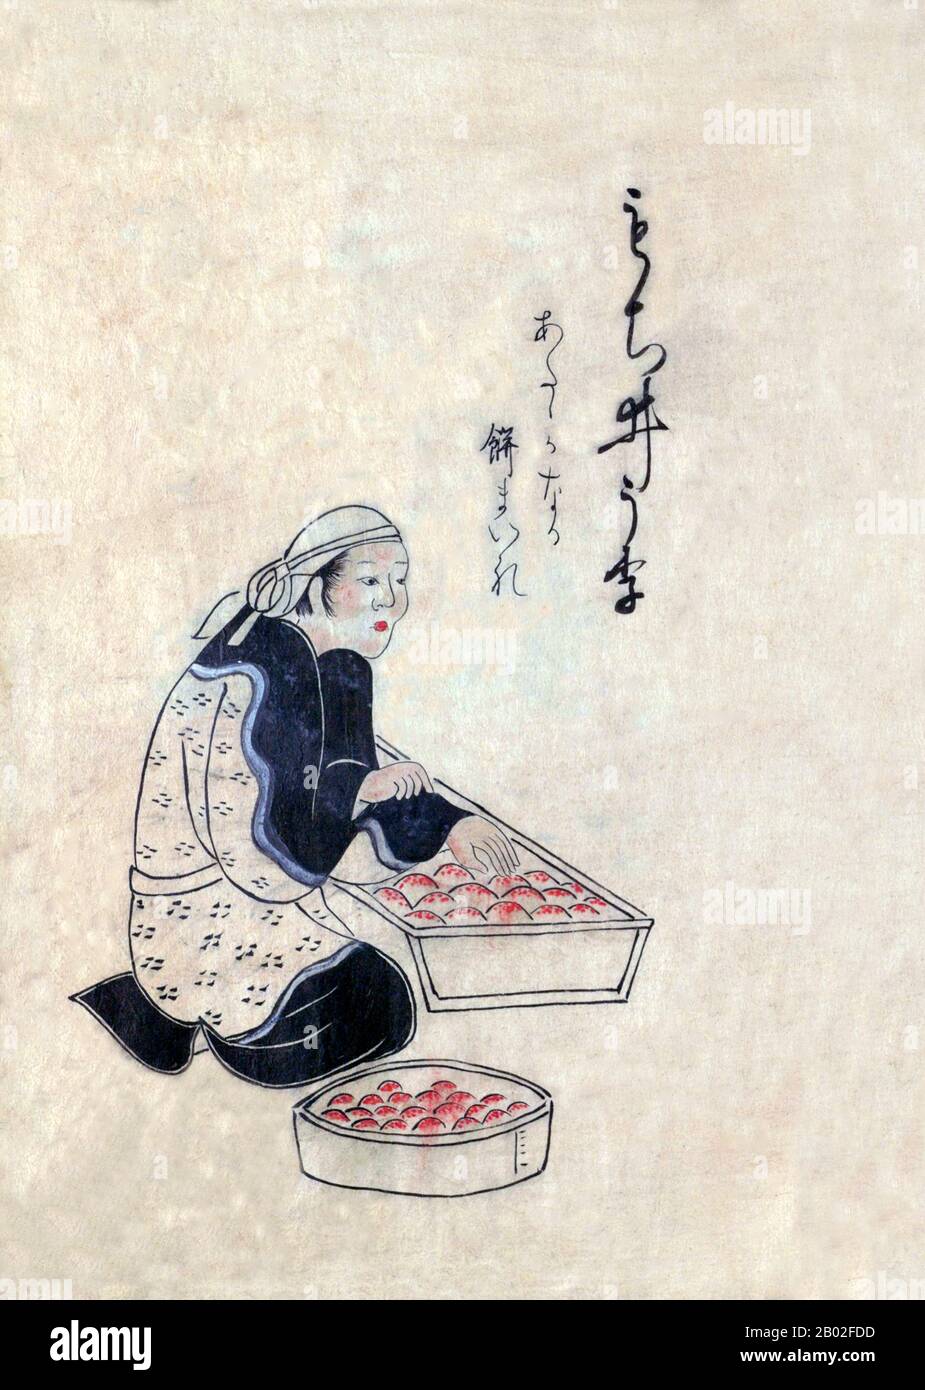 もち井うり
あたゝかなる
餅まいれ
alamy
alamy
alamy
alamy
alamy
alamy
alamy
Image ID: 2B02FDD
www.alamy.com